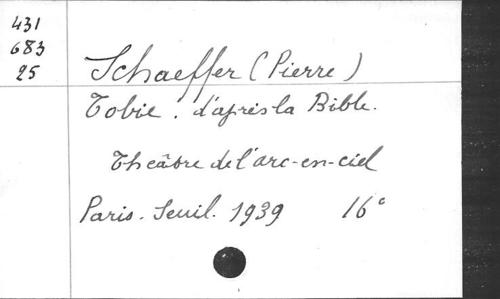 431
683
25
Schaeffer (Pierre)
Tobie. d'après la Bible.
Théâtre de l'arc-en-ciel
Paris. Seuil. 1939 16°